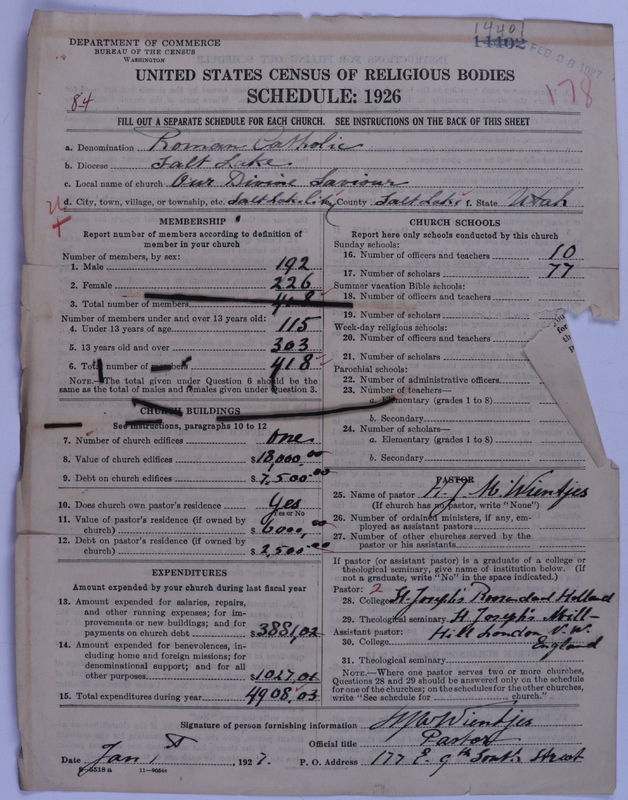 14401
14402
FEB 28 1927
DEPARTMENT OF COMMERCE
BUREAU OF THE CENSUS
WASHINGTON
UNITED STATES CENSUS OF RELIGIOUS BODIES
SCHEDULE: 1926
178
84
FILL OUT A SEPARATE SCHEDULE FOR EACH CHURCH. SEE INSTRUCTIONS ON THE BACK OF THIS SHEET
a. Denomination Roman Catholic
b. Diocese Salt Lake
c. Local name of church Our Divine Saviour
d. City, town, village, or township, etc. Salt Lake City County Salt Lake f. State Utah
MEMBERSHIP
Report number of members according to definition of
member in your church
Number of members, by sex:
1. Male 192
2. Female 226
3. Total number of members 418
Number of members under and over 13 years old:
4. Under 13 years of age 115
5. 13 years old and over 303
6. Total number of members 418
NOTE.—The total given under Question 6 should be the
same as the total of males and females given under Question 3.
CHURCH BUILDINGS
See instructions, paragraphs 10 to 12
7. Number of church edifices one
8. Value of church edifices $18,000.00
9. Debt on church edifices $7,500.00
10. Does church own pastor's residence? Yes
Yes or No
11. Value of pastor's residence (if owned by
church) $6000,00
12. Debt on pastor's residence (if owned by
church) $2,500.00
EXPENDITURES
Amount expended by your church during last fiscal year
13. Amount expended for salaries, repairs,
and other running expenses; for im-
provements or new buildings; and for
payments on church debt $3881,02
14. Amount expended for benevolences, in-
cluding home and foreign missions; for
denominational support; and for all
other purposes $1027.01
15. Total expenditures during year 4908,03
CHURCH SCHOOLS
Report here only schools conducted by this church
Sunday schools:
16. Number of officers and teachers 10
17. Number of scholars 77
Summer vacation Bible schools:
18. Number of officers and teachers
19. Number of scholars
Week-day religious schools:
20. Number of officers and teachers
21. Number of scholars
Parochial schools:
22. Number of administrative officers
23. Number of teachers—
a. Elementary (grades 1 to 8)
b. Secondary
24. Number of scholars—
a. Elementary (grades 1 to 8)
b. Secondary
PASTOR
25. Name of pastor M. Wientjes
(If church has no pastor, write "None")
26. Number of ordained ministers, if any, em-
ployed as assistant pastors
27. Number of other churches served by the
pastor or his assistants
If pastor (or assistant pastor) is a graduate of a college or
theological seminary, give name of institution below. (If
not a graduate, write "No" in the space indicated.)
Pastor: 2
28. College St Joseph's Roosendaal Holland
29. Theological seminary St Joseph's Mill-
Assistant pastor: Hill London N.W.
30. College England
31. Theological seminary
NOTE.—Where one pastor serves two or more churches,
Questions 28 and 29 should be answered only on the schedule
for one of the churches; on the schedules for the other churches,
write "See schedule for church."
Signature of person furnishing information Wientjes
Official title Pastor
Date Jan 1st, 1927. P. O. Address 177 E. 9th South Street
8-5518a 11-9054a